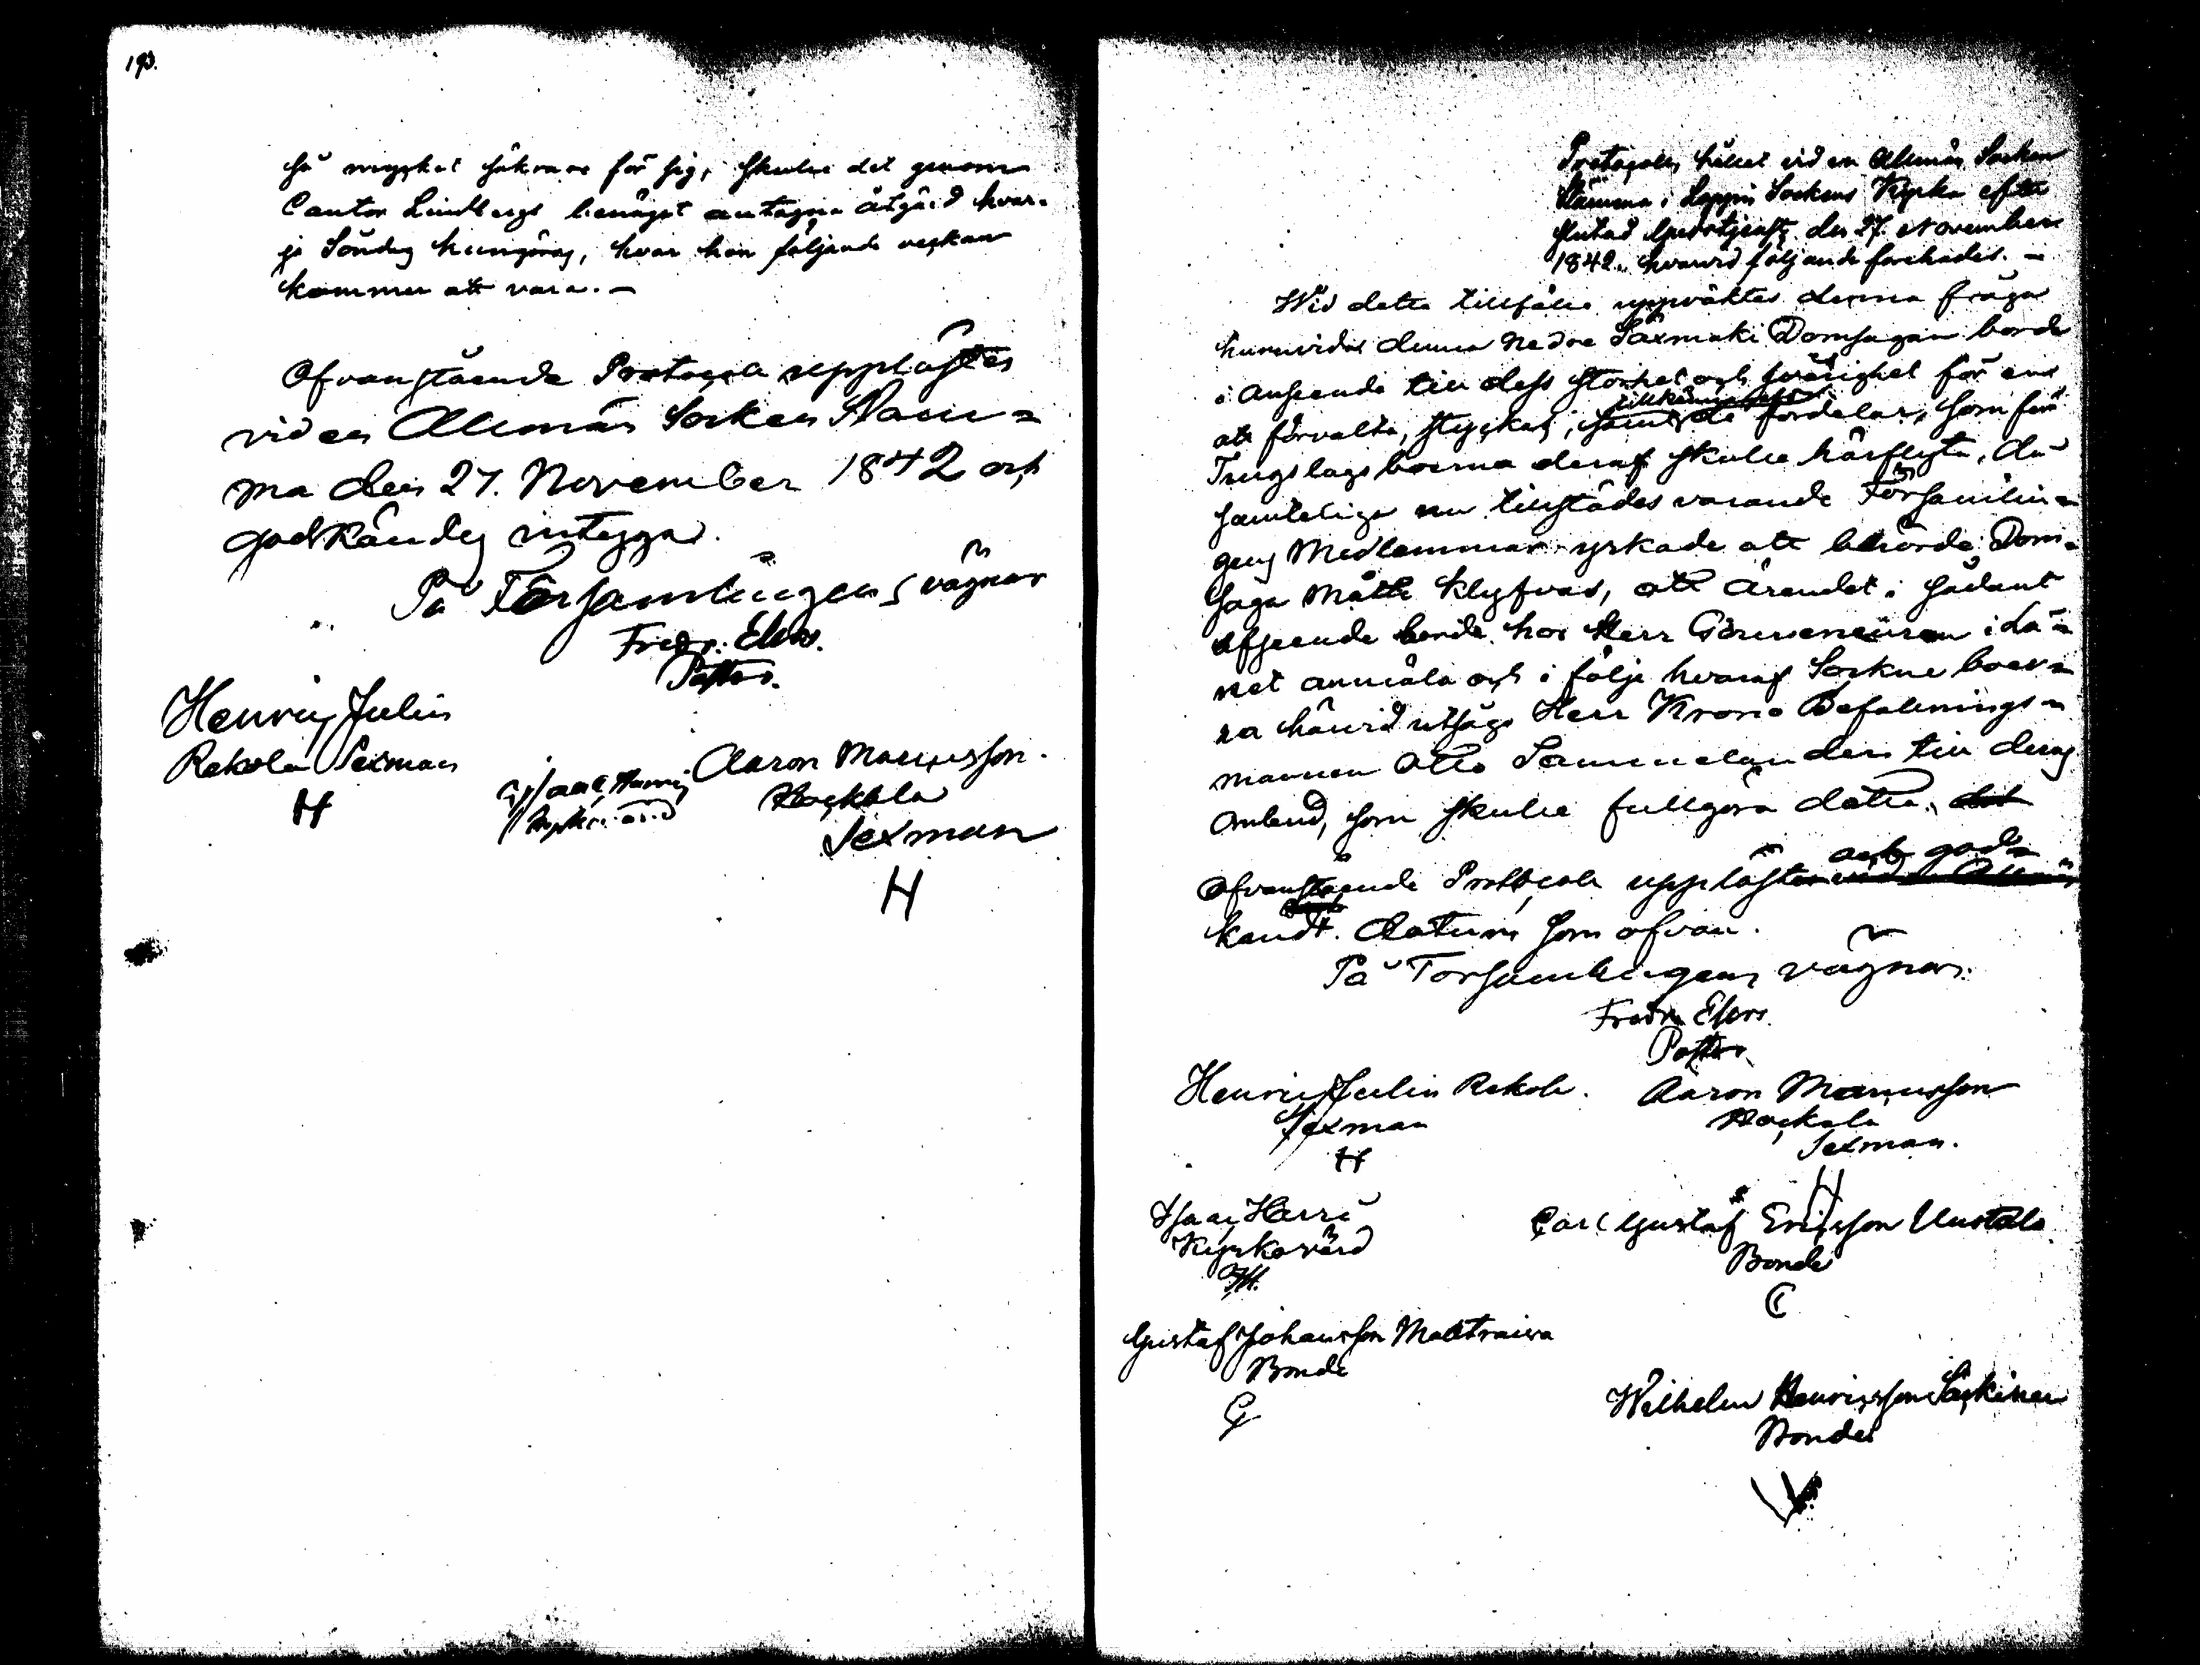 190.
så mycket säkrare för sig, skulle det genom
Cantor Lindbergs benäget antagna åtgärd hvar-
je Söndag kungöras, hvar han följande veckan
kommer att vara. —
Ofvanstående Protocoll upplästes
vid en Allmän Socken Stäm=
ma den 27. November 1842 och
godkändes intygar.
På Församlingens vägnar
Fredr. Elers.
Pastor.
Henric Julin
Rekola Sexman
H
Isaac Harri
Kyrkovärd
Aaron Maunusson
Sexman
H
Protocoll, hållet vid en Allmän Socken
Stämma i Loppis Sockens Kyrka efter
slutad Gudstjenst, den 27 November
1842, hvarvid följande förehades. —
Wid detta tillfälle uppväktes denna fråga
huruvida denna nedre Säxmäki Domsagan borde
i anseende till dess storhet och svårighet för en
att förvalta, styckas, samt de fördelar, som för
Tingslagsboerna deraf skulle härflyta, då
samtelige nu tillstädes varande Församlin=
gens Medlemmar yrkade att berörde Dom=
saga måtte klyfvas, att ärendet i sådant
afseende borde hos Herr Gouverneuren i Lä=
net anmälas och i följe hvaraf Sockne boer=
na härvid utsågo Herr Krono Befallnings=
mannen Otto Samuel till deras
ombud, som skulle fullgöra detta.
Ofvanstående Protocoll upplästes och god=
kändt. Datum som ofvan.
På Församlingens vägnar.
Fredr. Elers.
Pastor.
Henric Julin Rekola.
Sexman
H
Aaron Maunusson
Sexman.
H
Isaac Harri
Kyrkovärd
IH.
Carl Gustaf Ericsson Uustalo
Bonde
C
Gustaf Johansson
Bonde
G
Wilhelm Henricsson
Bonde
W